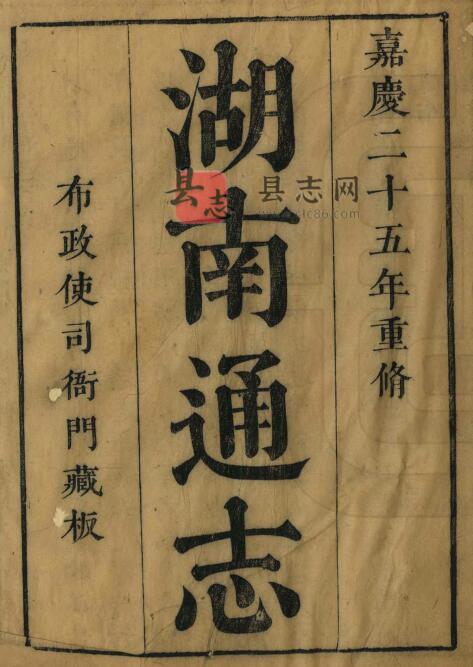 嘉慶二十五年重脩
湖南通志
布政使司衙門藏板
县志
县志网